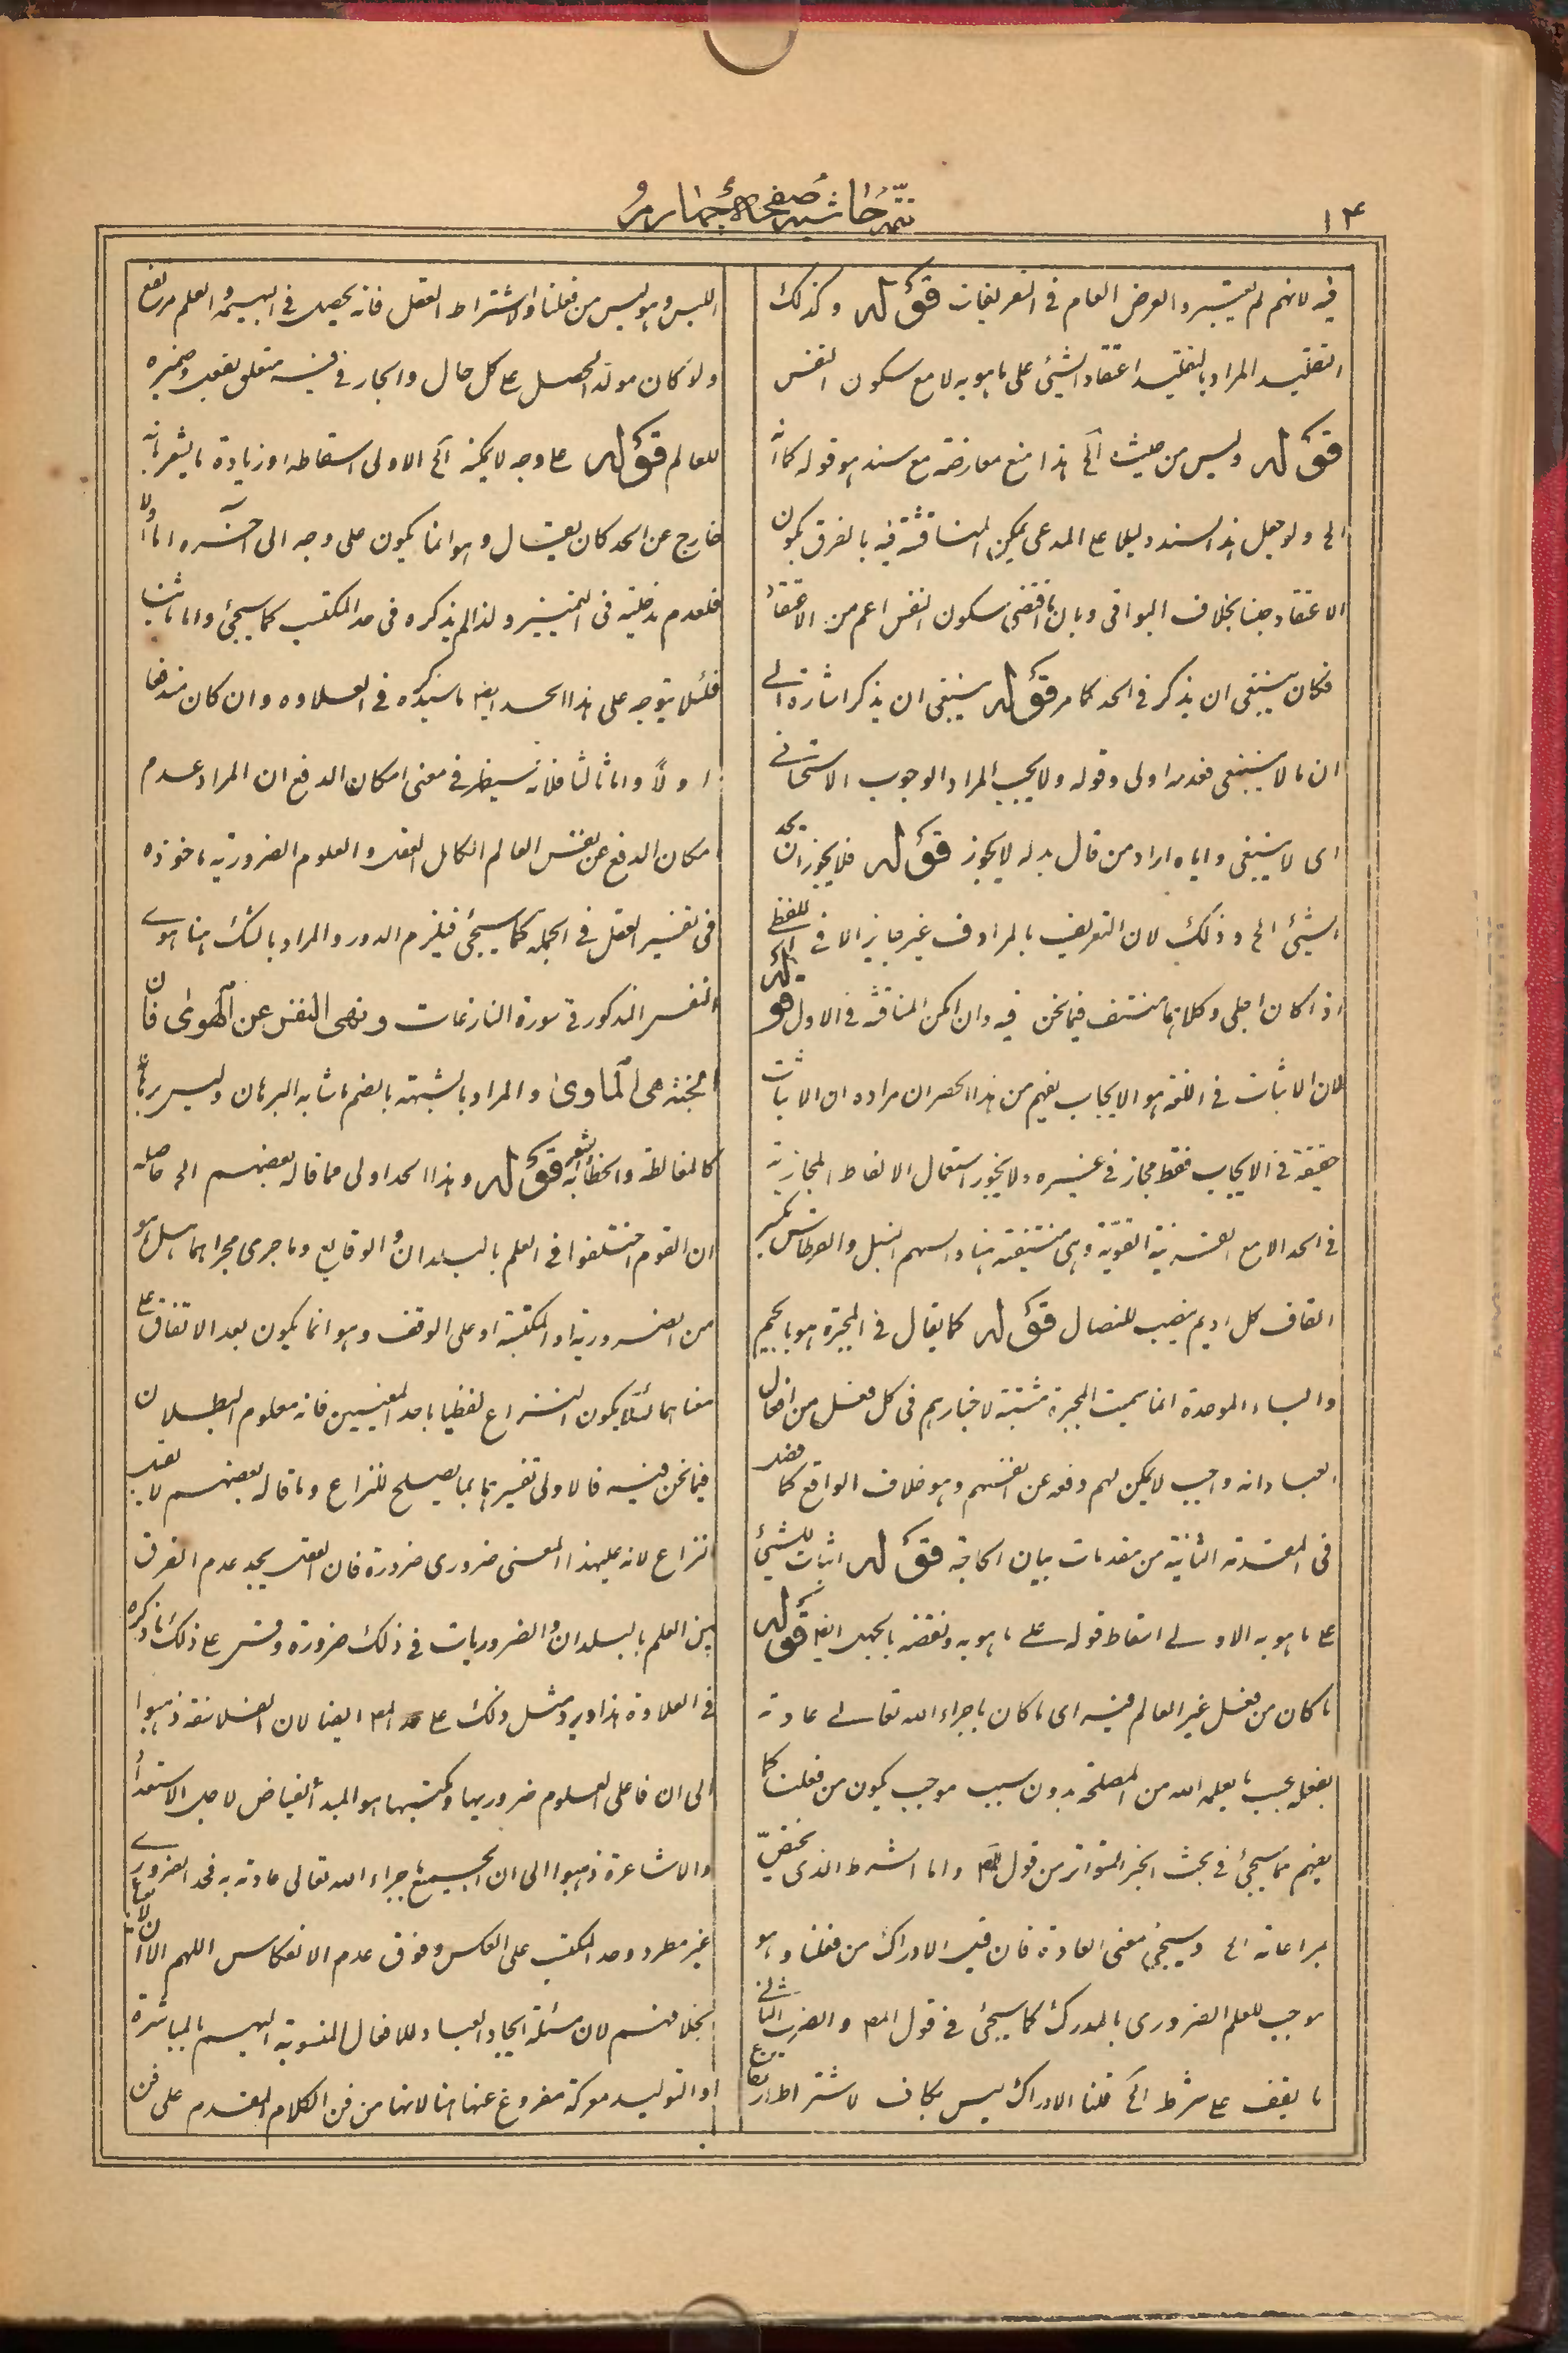 ١٤
تتمه حاشيه صفحهٔ چهارم
فيه لانهم لم يعتبروا العرض العام فى التعريفات قوله وكذلك
التقليد المراد بالتقليد اعتقاد الشيئ على ما هو به لا مع سكون النفس
قوله وليس من حيث الخ هذا منع معارضة مع سند هو قوله كما انه
الخ ولو جعل هذا السند دليلا على المدعى يمكن المناقشة فيه بالفرق بكون
الاعتقاد جنسا بخلاف البواقى وبان ما اقتضى سكون النفس اعم من الاعتقاد
فكان ينبغى ان يذكر فى الحد كما مر قوله ينبغى ان يذكر اشارة الى
ان ما لا ينبغى فعدمه اولى وقوله ولا يجب المراد الوجوب الاستحسانى
اى لا ينبغى واياه اراد من قال بدله لا يجوز قوله فلا يجوز ان يحد
الشيئ الخ وذلك لان التعريف بالمرادف غير جايز الا فى اللفظى
اذا كان اجلى وكلاهما منتف فيما نحن فيه وان امكن المناقشة فى الاول قوله هو
لان الاثبات فى اللغة هو الايجاب يفهم من هذا الحصر ان مراده ان الاثبات
حقيقة فى الايجاب فقط مجاز فى غيره ولا يجوز استعمال الالفاظ المجازية
فى الحد الا مع القرينة القوية وهى منتفية هنا والسهم النبل والقرطاس بكسر
القاف كل اديم ينصب للنصال قوله كما يقال فى المجبرة هو بالجيم
والباء الموحدة انما سميت المجبرة مثبتة لاخبارهم فى كل فعل من افعال
العباد انه واجب لا يمكن لهم دفعه عن انفسهم وهو خلاف الواقع كما فصل
فى المقدمة الثانية من مقدمات بيان الحاجة قوله اثبات للشيئ
على ما هو به الاولى اسقاط قوله على ما هو به ونقضه بالجهل ايضا قوله
ما كان من فعل غير العالم فيه اى ما كان باجراء الله تعالى عادته
بفعله بحسب ما يعلمه الله من المصلحة بدون سبب موجب يكون من فعلنا كما
يفهم مما سيجئ فى بحث الخبر المتواتر من قول المص واما الشرط الذى يختص
بمراعاته الخ وسيجئ معنى العادة فان قيل الادراك من فعلنا وهو
موجب للعلم الضرورى بالمدرك كما سيجئ فى قول المص والضرب الثانى
ما يقف على شرط الخ قلنا الادراك ليس بكاف لاشتراط ارتفاع
اللبس وهو ليس من فعلنا ولاشتراط العقل فانه يحصل فى البهيمة والعلم مرتفع
ولا كان مولدا لحصل على كل حال والجار فى فيه متعلق بفعل وضميره
للعالم قوله على وجه لا يمكنه الخ الاولى اسقاطه او زيادة ما يشعر بانه
خارج عن الحد كان يقال وهو انما يكون على وجه الى آخره اما اولا
فلعدم مدخليته فى التمييز ولذا لم يذكره فى حد المكتسب كما سيجئ واما ثانيا
فلئلا يتوجه على هذا الحد ايضا ما سنذكره فى العلاوه وان كان مندفعا
اولا واما ثالثا فلانه سيظهر فى معنى امكان الدفع ان المراد عدم
امكان الدفع عن نفس العالم الكامل العقل والعلوم الضرورية ماخوذه
فى تفسير العقل فى الجملة كما سيجئ فيلزم الدور والمراد بالشك هنا هوى
النفس المذكور فى سورة النازعات ونهى النفس عن الهوى فان
الجنة هى الماوى والمراد بالشبهة بالضم ما شابه البرهان وليس برهانا
كالمغالطة والخطابة والشعر قوله وهذا الحد اولى مما قاله بعضهم الخ حاصله
ان القوم اختلفوا فى العلم بالبلدان والوقايع وما جرى مجراهما هل هو
من الضرورية او المكتسبة او على الوقف وهو انما يكون بعد الاتفاق على
معناهما لئلا يكون النزاع لفظيا باحد المعنيين فانه معلوم البطلان
فيما نحن فيه فالاولى تفسيرهما بما يصلح للنزاع وما قاله بعضهم لا يصلح
النزاع لانه بهذا المعنى ضرورى ضرورة فان العقل يجد عدم الفرق
بين العلم بالبلدان والضروريات فى ذلك ضرورة وقس على ذلك ما ذكره
فى العلاوة هذا ويرد مثل ذلك على حد المص ايضا لان الفلاسفة ذهبوا
الى ان فاعل العلوم ضروريها ومكتسبها هو المبدأ الفياض لاجل الاستعداد
والاشاعرة ذهبوا الى ان الجميع باجراء الله تعالى عادته به فحد الضرورى
غير مطرد وحد المكتسب على العكس وفوق عدم الانعكاس اللهم الا ان لا يعبأ
بخلافهم لان مسئلة ايجاد العباد للافعال المنسوبة اليهم بالمباشرة
او التوليد موكدة مفروغ عنها هنا لانها من فن الكلام المقدم على فن